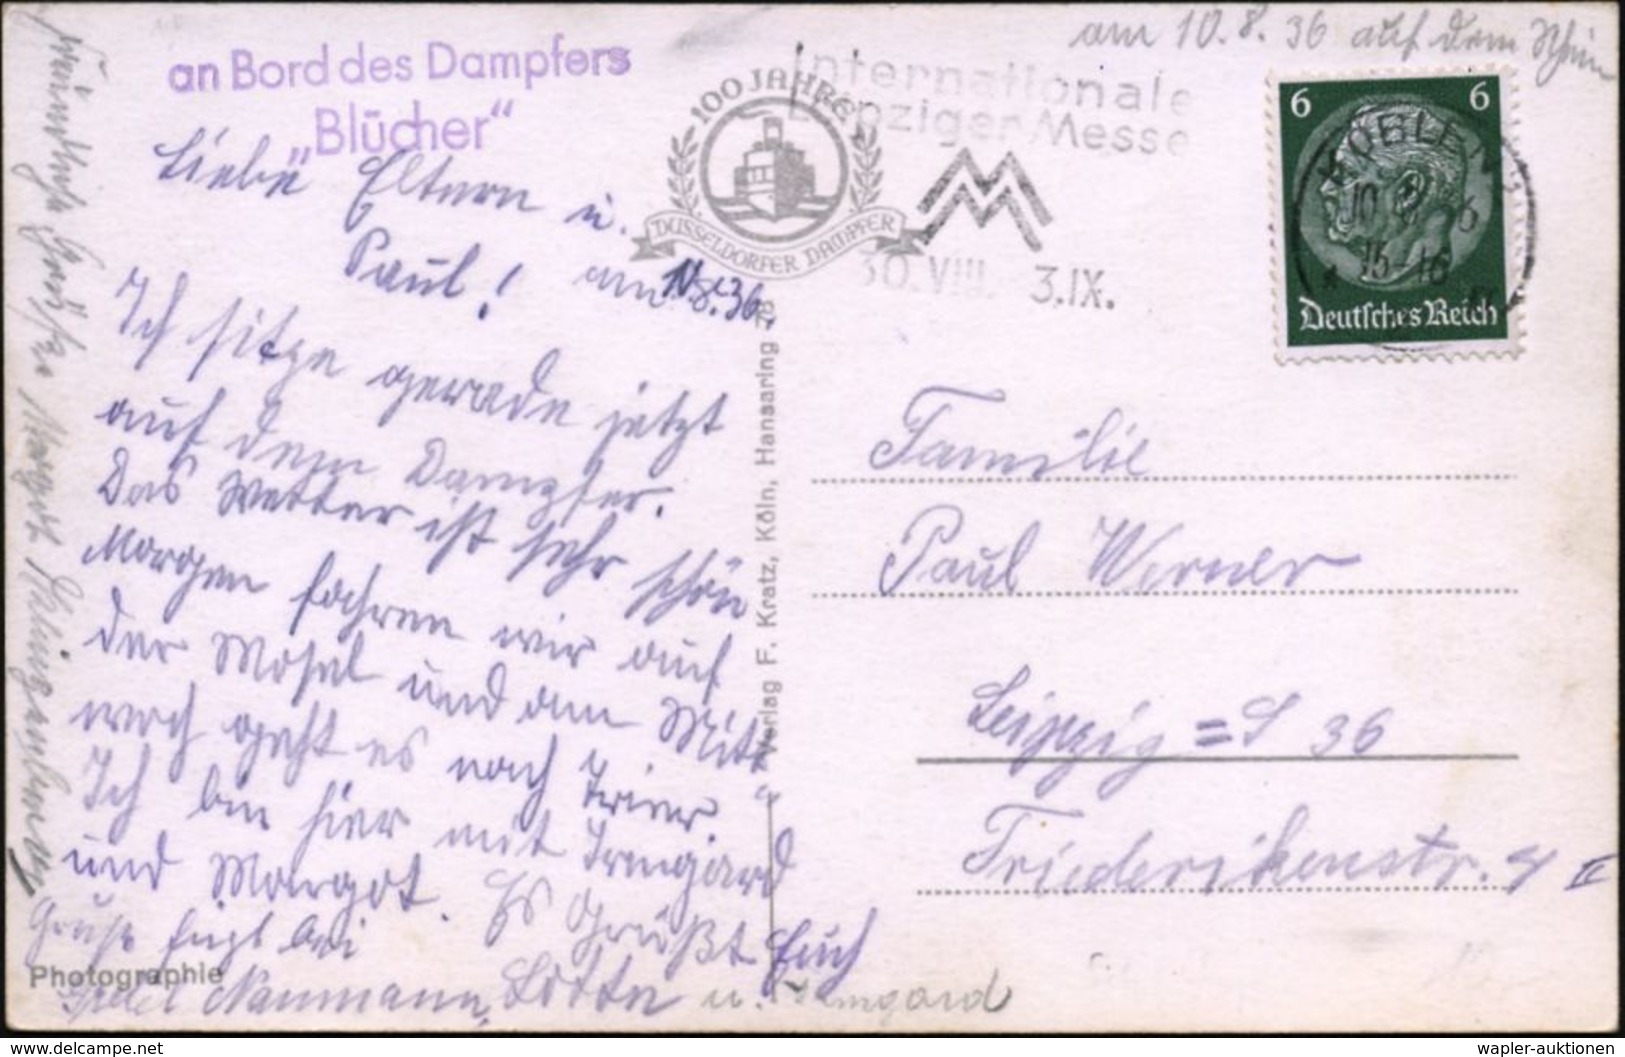 am 10.8.36 auf dem Rhein
an Bord des Dampfers
„Blücher“
100 JAHRE
DÜSSELDORFER DAMPFER
Internationale
Leipziger Messe
30.VIII. 3.IX.
6 6
Deutsches Reich
KOBLENZ
15-16
Liebe Eltern u.
Paul! am 10.8.36.
Ich sitze gerade jetzt
auf dem Dampfer.
Das Wetter ist sehr schön
Morgen fahren wir auf
der Mosel und am Mitt
woch geht es nach Trier.
Ich bin hier mit Irmgard
und Margot. Es Grüßt Euch
Grüße fügt bei
Naumann, Lotte u. Irmgard
Freundliche Grüße Margot
Familie
Paul Werner
Leipzig=S 36
Friederikenstr. 4 II
Verlag F. Kratz, Köln, Hansaring 78
Photographie
delcampe.net
wapler-auktionen